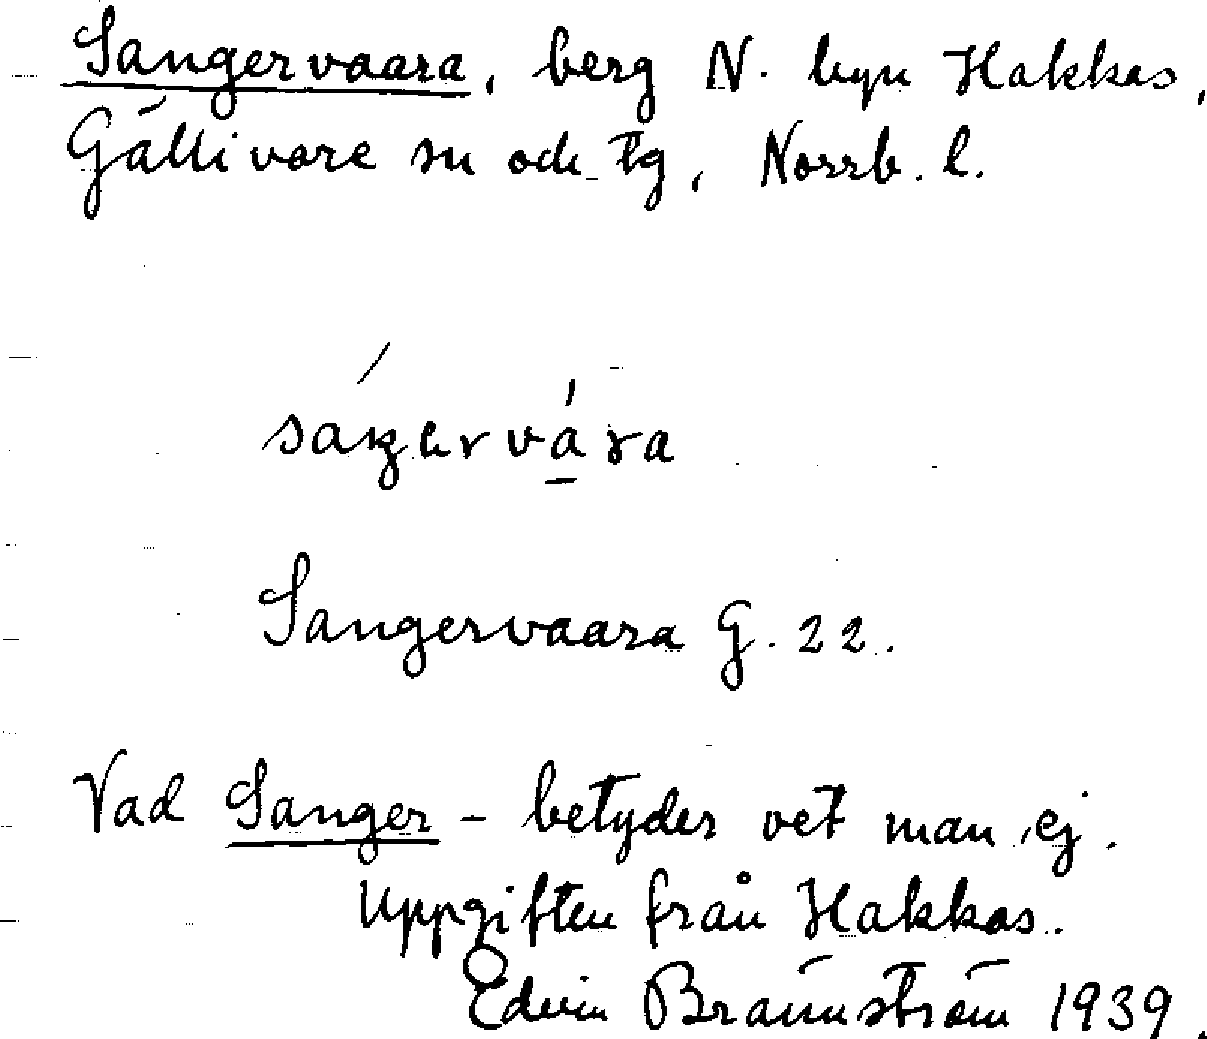 Sangervaara, berg N. byn Hakkas,
Gällivare sn och tg, Norrb. l.
Sangervaara G. 22.
Vad Sanger - betyder vet man ej.
Uppgiften från Hakkas.
Edvin Brännström 1939.